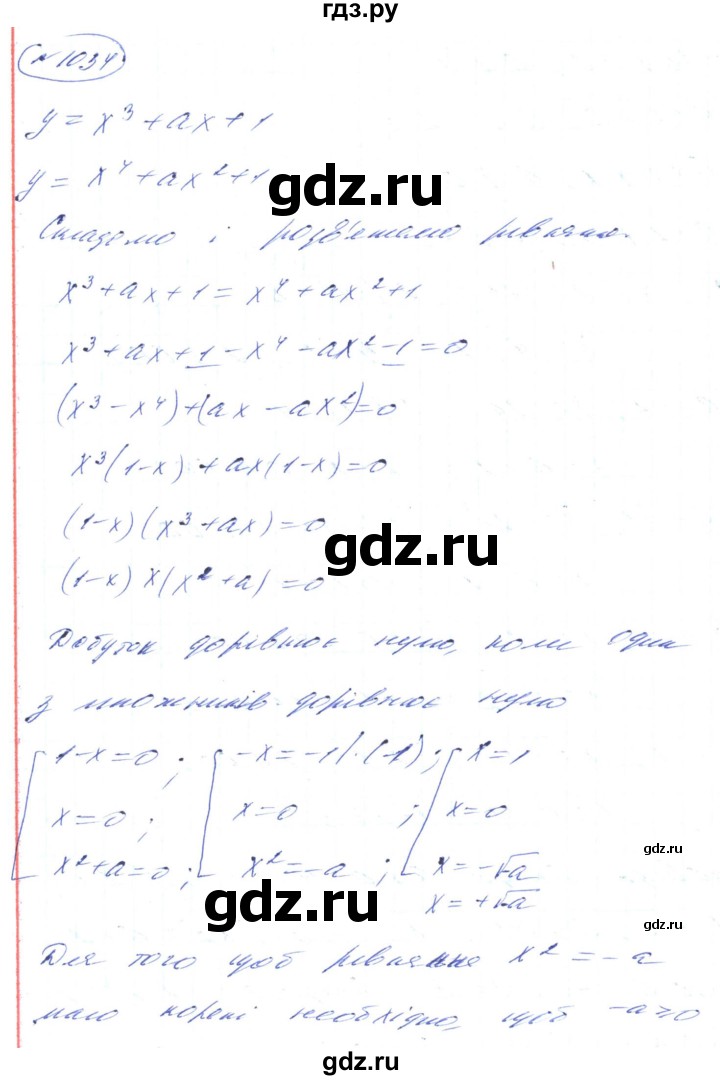 гдз.ру
№1034
y = x³ + ax + 1
y = x⁴ + ax² + 1
gdz.ru
Складемо і розв'яжемо рівняння.
x³ + ax + 1 = x⁴ + ax² + 1
x³ + ax + 1 - x⁴ - ax² - 1 = 0
(x³ - x⁴) + (ax - ax²) = 0
x³(1-x) + ax(1-x) = 0
(1-x)(x³ + ax) = 0
gdz.ru
(1-x) x (x² + a) = 0
Добуток дорівнює нулю, коли один
з множників дорівнює нулю
1-x=0 ; -x=-1 | ·(-1) ; x=1
x=0 ; x=0 ; x=0
gdz.ru
x²+a=0 ; x²=-a ; x=-√a
gdz.ru
x=+√a
gdz.ru
Для того щоб рівняння x² = -a
мало корені необхідно, щоб -a≥0
gdz.ru